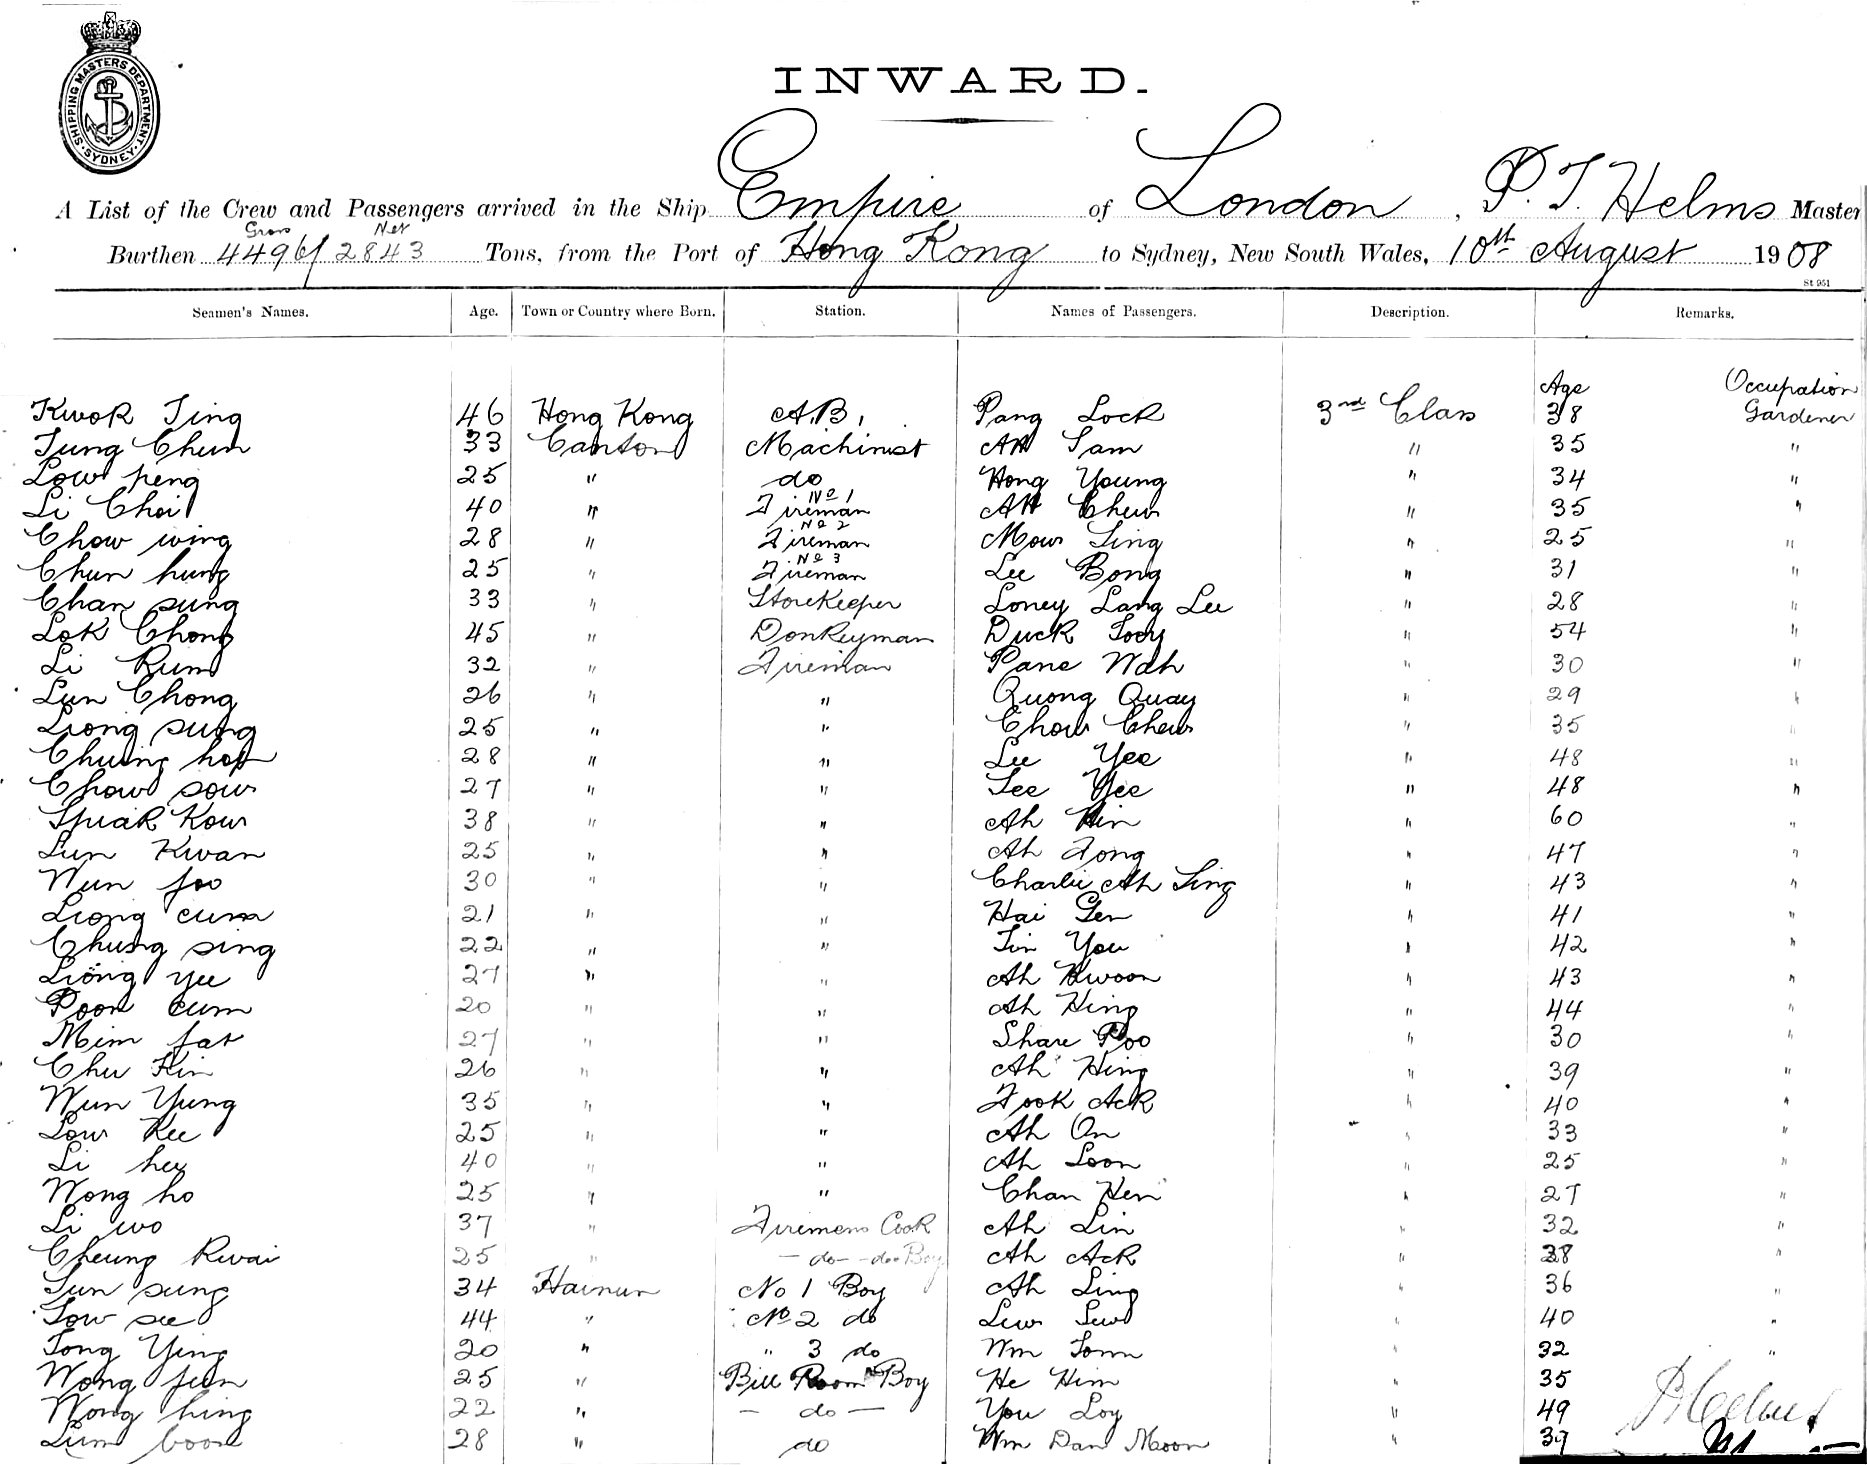 SHIPPING MASTERS DEPARTMENT. SYDNEY
INWARD.
A List of the Crew and Passengers arrived in the Ship Empire of London, P. T. Helms Master
Gross Net
Burthen 4496/2843 Tons, from the Port of Hong Kong to Sydney, New South Wales, 10th August 1908
St 951
Seamen's Names. Age. Town or Country where Born. Station. Names of Passengers. Description. Remarks.
Age Occupation
Kwok Ting 46 Hong Kong A.B. Pang Lock 3rd Class 38 Gardener
Tung Chun 33 Canton Machinist AH Sam " 35 "
Low peng 25 " do Hong Young " 34 "
Li Choi 40 " No 1 Fireman AH Chew " 35 "
Chow wing 28 " No 2 Fireman Mow Sing " 25 "
Chun hung 25 " No 3 Fireman Lee Bong " 31 "
Chan sung 33 " Storekeeper Loney Lang Lee " 28 "
Lok Chong 45 " Donkeyman Duck Looy " 54 "
Li Kum 32 " Fireman Pane Wah " 30 "
Lun Chong 26 " " Quong Quay " 29 "
Liong sung 25 " " Chow Chew " 35 "
Chuing hop 28 " " Lee Yee " 48 "
Chow sow 27 " " See Yee " 48 "
Kow 38 " " Ah Hin " 60 "
Lun Kwan 25 " " Ah Fong " 47 "
Wun foo 30 " " Charlie Ah Sing " 43 "
Liong cum 21 " " Hai Gen " 41 "
Chung sing 22 " " Tin You " 42 "
Liong yee 27 " " Ah Kwoon " 43 "
Poon cum 20 " " Ah Hing " 44 "
Mim fat 27 " " Share Poo " 30 "
Chu Kin 26 " " Ah Hing " 39 "
Wun Yung 35 " " Fook Ack " 40 "
Low Kee 25 " " Ah On " 33 "
Li hey 40 " " Ah Loon " 25 "
Wong ho 25 " " Chan Hen " 27 "
Li wo 37 " Firemens Cook Ah Lin " 32 "
Cheung Kwai 25 " - do - do Boy Ah Ack " 38 "
Sun sung 34 Hainun No 1 Boy Ah Ling " 36 "
Sow see 44 " No 2 do Lew Lew " 40 "
Tong Ying 20 " " 3 do Wm Tom " 32 "
Wong fun 25 " Bill Room Boy He Him " 35
Wong hing 22 " - do - You Loy " 49 P Helms
Lum boon 28 " do Wm Dan Moon " 39